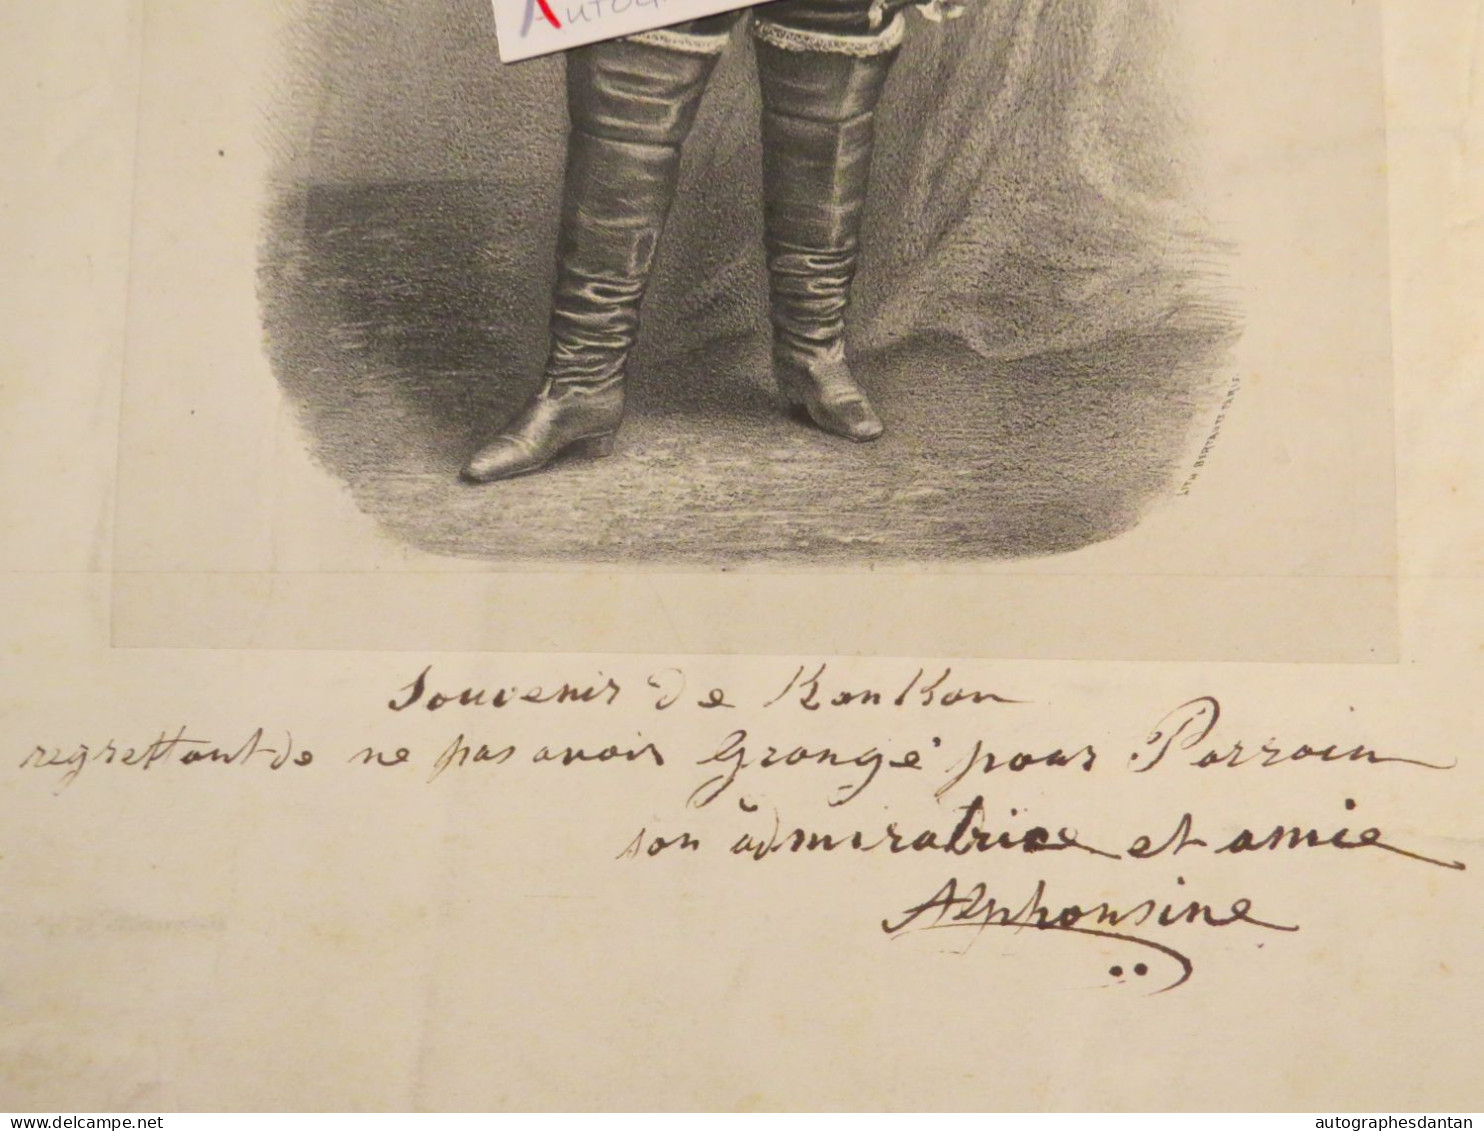 AUTOG
LITH BERTAUTS PARIS
Souvenir de KonKon
regrettant de ne pas avoir Grangé pour Parrain
son admiratrice et amie
Alphonsine
delcampe.net
autographesdantan